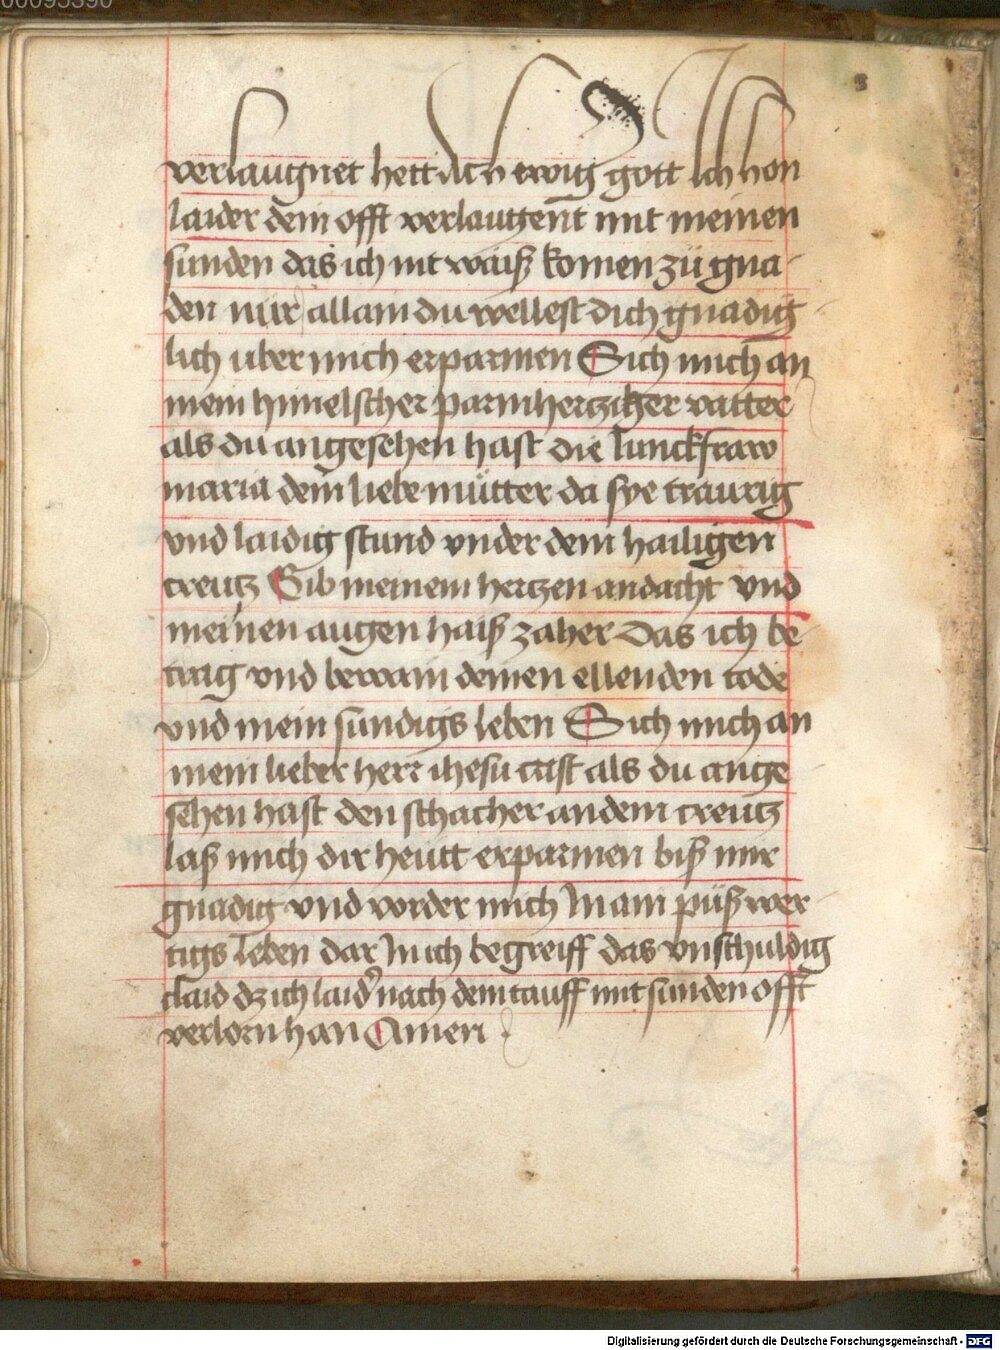 00095390
verlaugnet hett Ach ewig gott Ich hon
laider dem offt verlaugent mit meinen
sunden das ich nit waiß komen zü gna-
den nur allain du wellest dich gnadig-
lich uber mich erparmen Sich mich an
mein himelscher parmhertziger vatter
als du angesehen hast die Iunckfraw
maria dein liebe mütter da sye traurig
vnd laidig stund vnder dem hailigen
creutz Gib meinem hertzen andacht vnd
meinen augen haiß zaher Das ich be-
trag vnd bewain deinen ellenden tode
vnd mein sundigs leben Sich mich an
mein lieber herr ihesu crist als du ange
sehen hast den schacher an dem creutz
laß mich dir heutt erparmen biß mir
gnadig vnd vorder mich In ain püßwer-
tigs leben dar In ich begreiff das vnschuldig
claid dz ich laider nach dem tauff mit sunden offt
verlorn han Amen
Digitalisierung gefördert durch die Deutsche Forschungsgemeinschaft - DFG